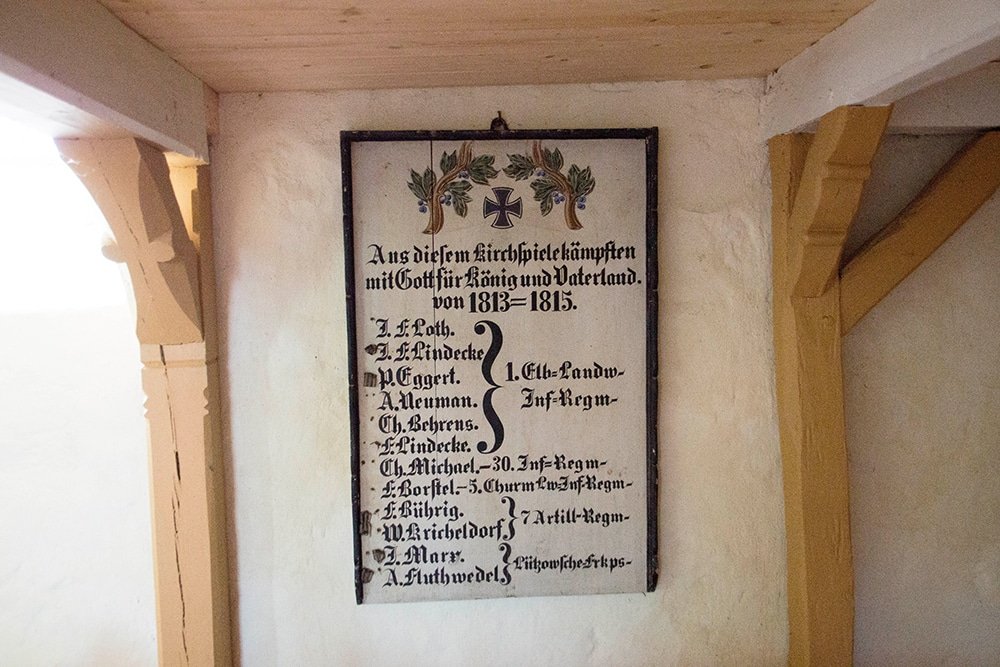 Aus diesem Kirchspiele kämpften
mit Gott für König und Vaterland.
von 1813=1815.
J. F. Loth.
J. F. Lindecke
P. Eggert.
A. Neuman.
Ch. Behrens.
F. Lindecke.
1. Elb=Landw-
Inf=Regm-
Ch. Michael.-30. Inf=Regm-
F. Borstel.-5. Churm Lw=Inf-Regm-
F. Bührig.
W. Kricheldorf
7 Artill-Regm-
J. Marx.
A. Fluthwedel
Lützowsche Frkps-